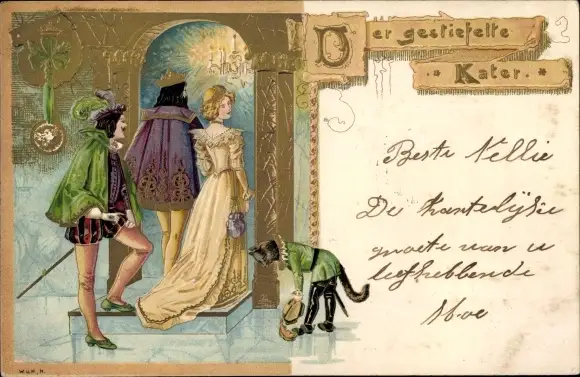 Der gestiefelte
Kater.
2
3
Beste Nellie
De hartelijke
groete van u
liefhebbende
Moe
W.u.K.N.